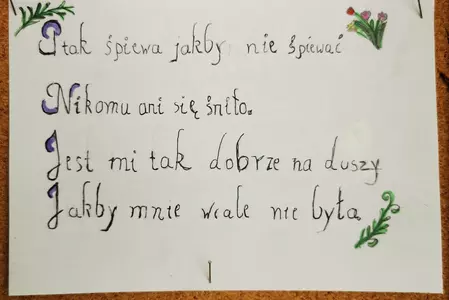 Ptak śpiewa jakby nie śpiewać
Nikomu ani się śniło.
Jest mi tak dobrze na duszy
Jakby mnie wcale nie była